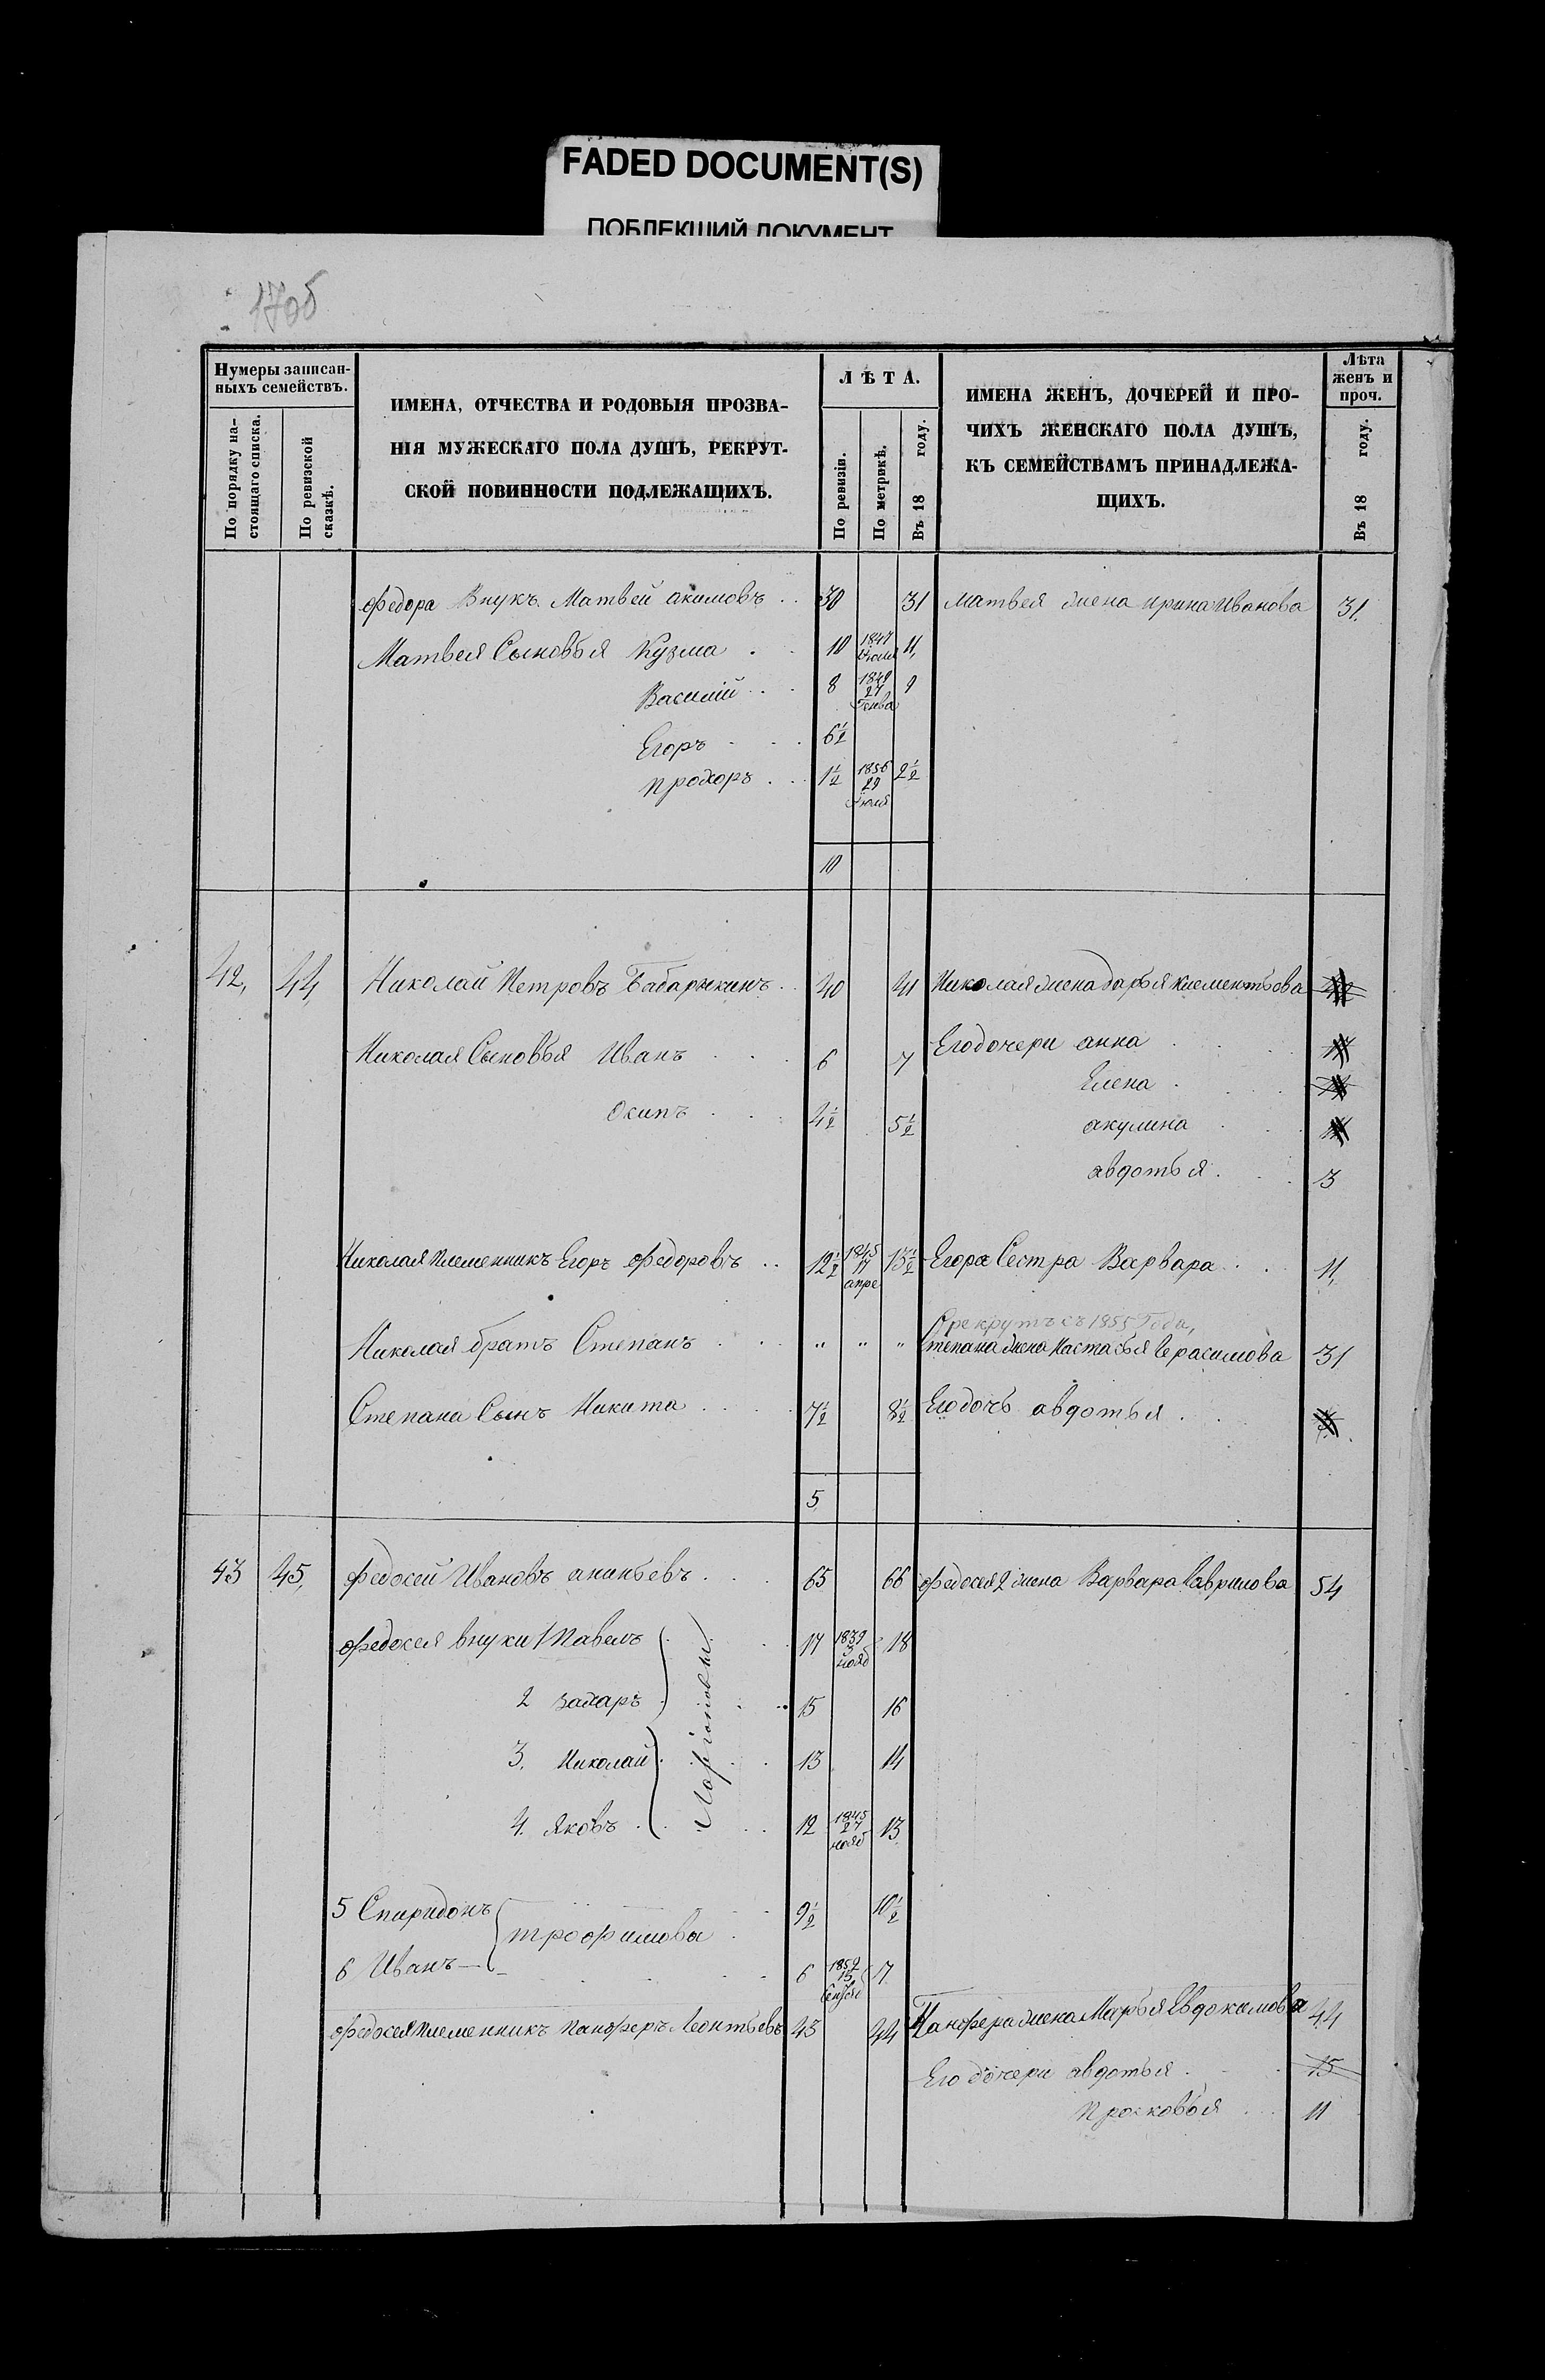 FADED DOCUMENT(S)
ПОБЛЕКШИЙ ДОКУМЕНТ
170б
Нумеры записан-
ныхъ семействъ.
По порядку на-
стоящаго списка.
По ревизской
сказкѣ.
ИМЕНА, ОТЧЕСТВА И РОДОВЫЯ ПРОЗВА-
НІЯ МУЖЕСКАГО ПОЛА ДУШЪ, РЕКРУТ-
СКОЙ ПОВИННОСТИ ПОДЛЕЖАЩИХЪ.
ЛѢТА.
По ревизіи.
По метрикѣ.
Въ 18 году.
ИМЕНА ЖЕНЪ, ДОЧЕРЕЙ И ПРО-
ЧИХЪ ЖЕНСКАГО ПОЛА ДУШЪ,
КЪ СЕМЕЙСТВАМЪ ПРИНАДЛЕЖА-
ЩИХЪ.
Лѣта
женъ и
проч.
Въ 18 году.
Федора Внукъ Матвей акимовъ 30 31 Матвея жена ирина Иванова 31.
Матвея Сыновья Кузма 10 1847 11,
Василій 8 1849 27 Генва 9
Егоръ 6½
прохоръ 1½ 1856 29 Июля 2½
10
42, 44, Николай Петровъ Бабарыкинъ 40 41 Николая жена дарья Клементьова
Николая Сыновья Иванъ 6 7 Его дочери анна
Елена
Осипъ 4½ 5½ акулина
авдотья 3
Николая племенникъ Егоръ Федоровъ 12½ 1845 17 апре 13½ Егора Сестра Варвара 11,
В рекрутъ съ 1855 Года,
Николая братъ Степанъ " " " Степана жена Настасья Герасимова 31
Степана Сынъ Никита 7½ 8½ Его дочь авдотья
5
43 45, Федосей Ивановъ ананьевъ 65 66 Федосея 2 жена Варвара Гаврилова 54
Федосея внуки 1 Павелъ 17 1839 3 нояб 18
2 захаръ 15 16
3. Николай 13 14
4. Яковъ 12 1845 27 нояб 13
5 Спиридонъ 9½ 10½
трофимова
6 Иванъ 6 1852 15 Сентяб 7
Федосея племенникъ панферъ Леонтьевъ 43 44 Панфера жена Марья Евдокимова 44
Его дочери авдотья 15
прасковья 11